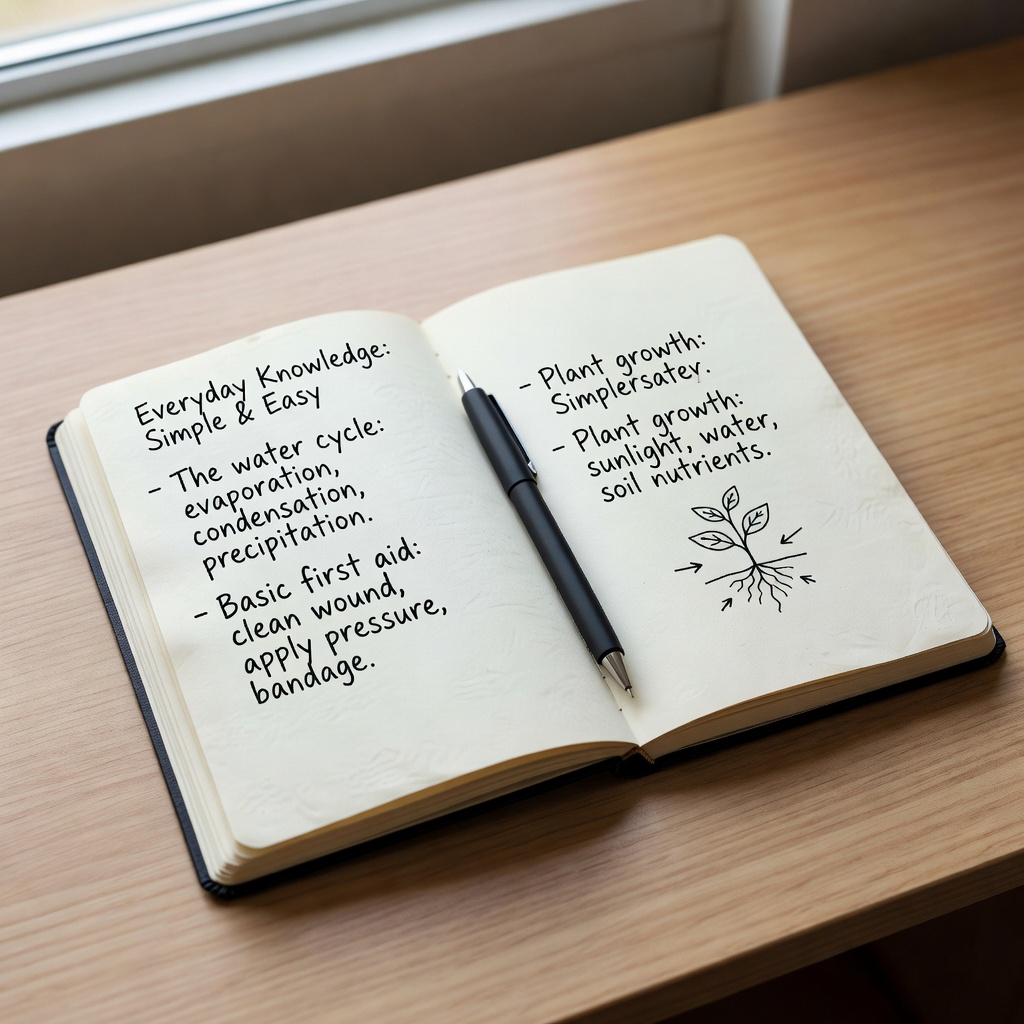 Everyday Knowledge:
Simple & Easy
- The water cycle:
evaporation,
condensation,
precipitation.
- Basic first aid:
clean wound,
apply pressure,
bandage.
- Plant growth:
Simplersatev.
- Plant growth:
sunlight, water,
soil nutrients.